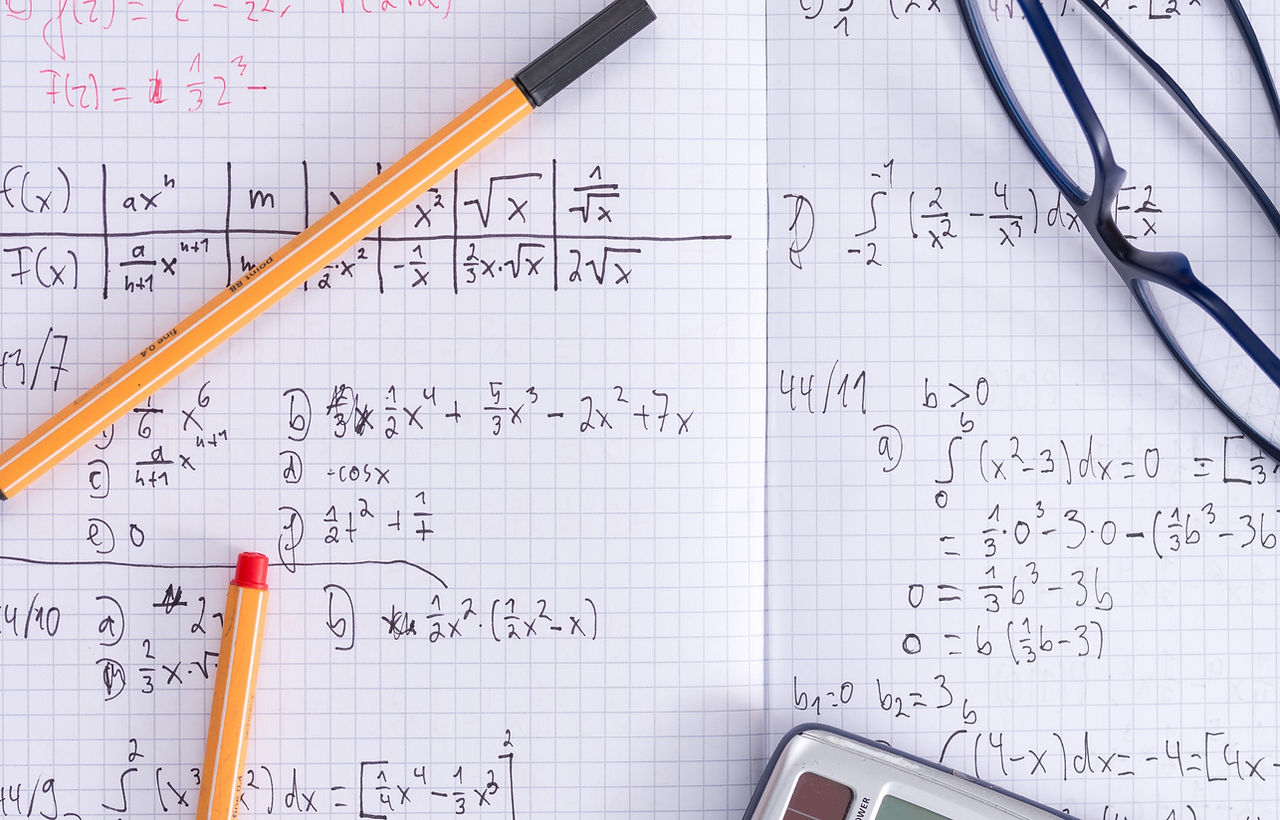 F(z) = 1/3 z³ –
f(x) | axⁿ | m | x² | √x | 1/√x
F(x) | a/(n+1) xⁿ⁺¹ | 1/2·x² | -1/x | 2/3 x·√x | 2√x
point 88
fine 0.4
3/7
1/6 x⁶ b) 1/2 x⁴ + 5/3 x³ – 2x² + 7x
c) a/(n+1) xⁿ⁺¹ d) -cosx
e) 0 f) 1/2 t² + 1/t
4/10 a) 2 b) 1/2x²·(1/2x²–x)
2/3 x·√
44/9 ∫² (x³ x²) dx = [1/4 x⁴ – 1/3 x³]²
f) ∫₋₂⁻¹ (2/x² – 4/x³) dx [–2/x
44/11 b>0
a) ∫₀ᵇ (x²–3) dx = 0 = [1/3
= 1/3·0³ – 3·0 – (1/3b³ – 3b
0 = 1/3b³ – 3b
0 = b (1/3b–3)
b₁=0 b₂=3
∫ᵇ (4–x) dx = –4 = [4x –
POWER